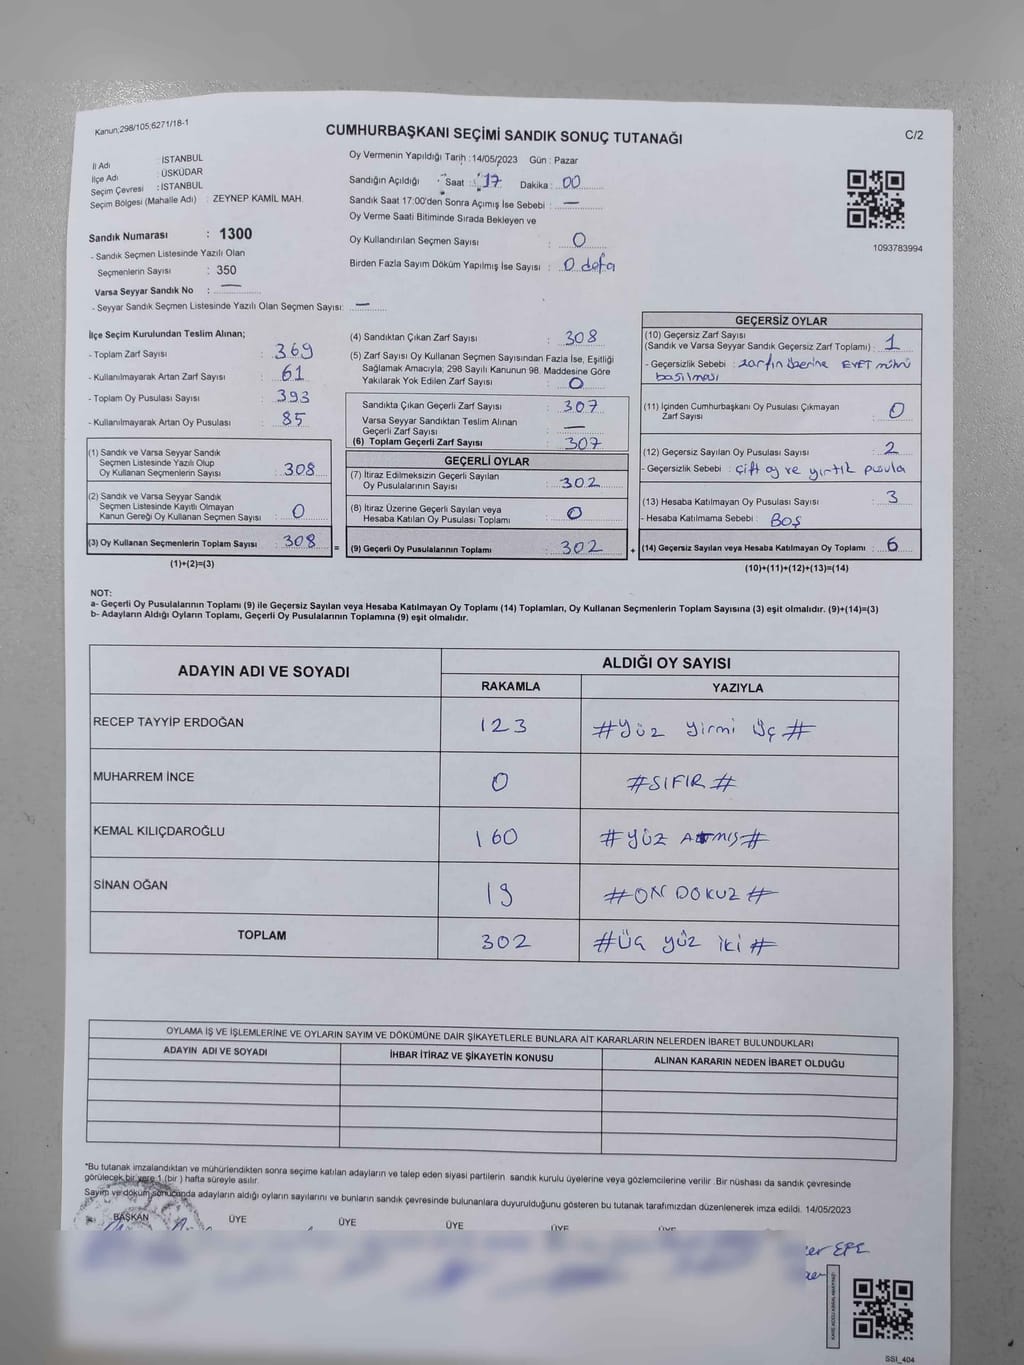 Kanun;298/105;6271/18-1
CUMHURBAŞKANI SEÇİMİ SANDIK SONUÇ TUTANAĞI
C/2
İl Adı : İSTANBUL
İlçe Adı : ÜSKÜDAR
Seçim Çevresi : İSTANBUL
Seçim Bölgesi (Mahalle Adı) : ZEYNEP KAMİL MAH.
Sandık Numarası : 1300
- Sandık Seçmen Listesinde Yazılı Olan
Seçmenlerin Sayısı : 350
Varsa Seyyar Sandık No : —
- Seyyar Sandık Seçmen Listesinde Yazılı Olan Seçmen Sayısı: —
Oy Vermenin Yapıldığı Tarih :14/05/2023 Gün : Pazar
Sandığın Açıldığı Saat : 17 Dakika : 00
Sandık Saat 17:00'den Sonra Açımış İse Sebebi : —
Oy Verme Saati Bitiminde Sırada Bekleyen ve
Oy Kullandırılan Seçmen Sayısı : 0
Birden Fazla Sayım Döküm Yapılmış İse Sayısı : 0 defa
1093783994
İlçe Seçim Kurulundan Teslim Alınan;
- Toplam Zarf Sayısı : 369
- Kullanılmayarak Artan Zarf Sayısı : 61
- Toplam Oy Pusulası Sayısı : 393
- Kullanılmayarak Artan Oy Pusulası : 85
(1) Sandık ve Varsa Seyyar Sandık
Seçmen Listesinde Yazılı Olup
Oy Kullanan Seçmenlerin Sayısı : 308
(2) Sandık ve Varsa Seyyar Sandık
Seçmen Listesinde Kayıtlı Olmayan
Kanun Gereği Oy Kullanan Seçmen Sayısı : 0
(3) Oy Kullanan Seçmenlerin Toplam Sayısı : 308
(1)+(2)=(3)
(4) Sandıktan Çıkan Zarf Sayısı : 308
(5) Zarf Sayısı Oy Kullanan Seçmen Sayısından Fazla İse, Eşitliği
Sağlamak Amacıyla; 298 Sayılı Kanunun 98. Maddesine Göre
Yakılarak Yok Edilen Zarf Sayısı : 0
Sandıkta Çıkan Geçerli Zarf Sayısı : 307
Varsa Seyyar Sandıktan Teslim Alınan
Geçerli Zarf Sayısı : —
(6) Toplam Geçerli Zarf Sayısı : 307
GEÇERLİ OYLAR
(7) İtiraz Edilmeksizin Geçerli Sayılan
Oy Pusulalarının Sayısı : 302
(8) İtiraz Üzerine Geçerli Sayılan veya
Hesaba Katılan Oy Pusulası Toplamı : 0
= (9) Geçerli Oy Pusulalarının Toplamı : 302
GEÇERSİZ OYLAR
(10) Geçersiz Zarf Sayısı
(Sandık ve Varsa Seyyar Sandık Geçersiz Zarf Toplamı) : 1
- Geçersizlik Sebebi : zarfın üzerine EVET mührü
basılması
(11) İçinden Cumhurbaşkanı Oy Pusulası Çıkmayan
Zarf Sayısı : 0
(12) Geçersiz Sayılan Oy Pusulası Sayısı : 2
- Geçersizlik Sebebi : çift oy ve yırtık pusula
(13) Hesaba Katılmayan Oy Pusulası Sayısı : 3
- Hesaba Katılmama Sebebi : BOŞ
+ (14) Geçersiz Sayılan veya Hesaba Katılmayan Oy Toplamı : 6
(10)+(11)+(12)+(13)=(14)
NOT:
a- Geçerli Oy Pusulalarının Toplamı (9) ile Geçersiz Sayılan veya Hesaba Katılmayan Oy Toplamı (14) Toplamları, Oy Kullanan Seçmenlerin Toplam Sayısına (3) eşit olmalıdır. (9)+(14)=(3)
b- Adayların Aldığı Oyların Toplamı, Geçerli Oy Pusulalarının Toplamına (9) eşit olmalıdır.
ADAYIN ADI VE SOYADI ALDIĞI OY SAYISI
RAKAMLA YAZIYLA
RECEP TAYYİP ERDOĞAN 123 #Yüz Yirmi Üç#
MUHARREM İNCE 0 #SIFIR#
KEMAL KILIÇDAROĞLU 160 #YÜZ ATMIŞ#
SİNAN OĞAN 19 #ON DOKUZ#
TOPLAM 302 #Üç yüz iki#
OYLAMA İŞ VE İŞLEMLERİNE VE OYLARIN SAYIM VE DÖKÜMÜNE DAİR ŞİKAYETLERLE BUNLARA AİT KARARLARIN NELERDEN İBARET BULUNDUKLARI
ADAYIN ADI VE SOYADI İHBAR İTİRAZ VE ŞİKAYETİN KONUSU ALINAN KARARIN NEDEN İBARET OLDUĞU
*Bu tutanak imzalandıktan ve mühürlendikten sonra seçime katılan adayların ve talep eden siyasi partilerin sandık kurulu üyelerine veya gözlemcilerine verilir. Bir nüshası da sandık çevresinde
görülecek bir yere 1 (bir ) hafta süreyle asılır.
Sayım ve döküm sonucunda adayların aldığı oyların sayılarını ve bunların sandık çevresinde bulunanlara duyurulduğunu gösteren bu tutanak tarafımızdan düzenlenerek imza edildi. 14/05/2023
BAŞKAN ÜYE ÜYE ÜYE ÜYE ÜYE
EFE
SSI_404